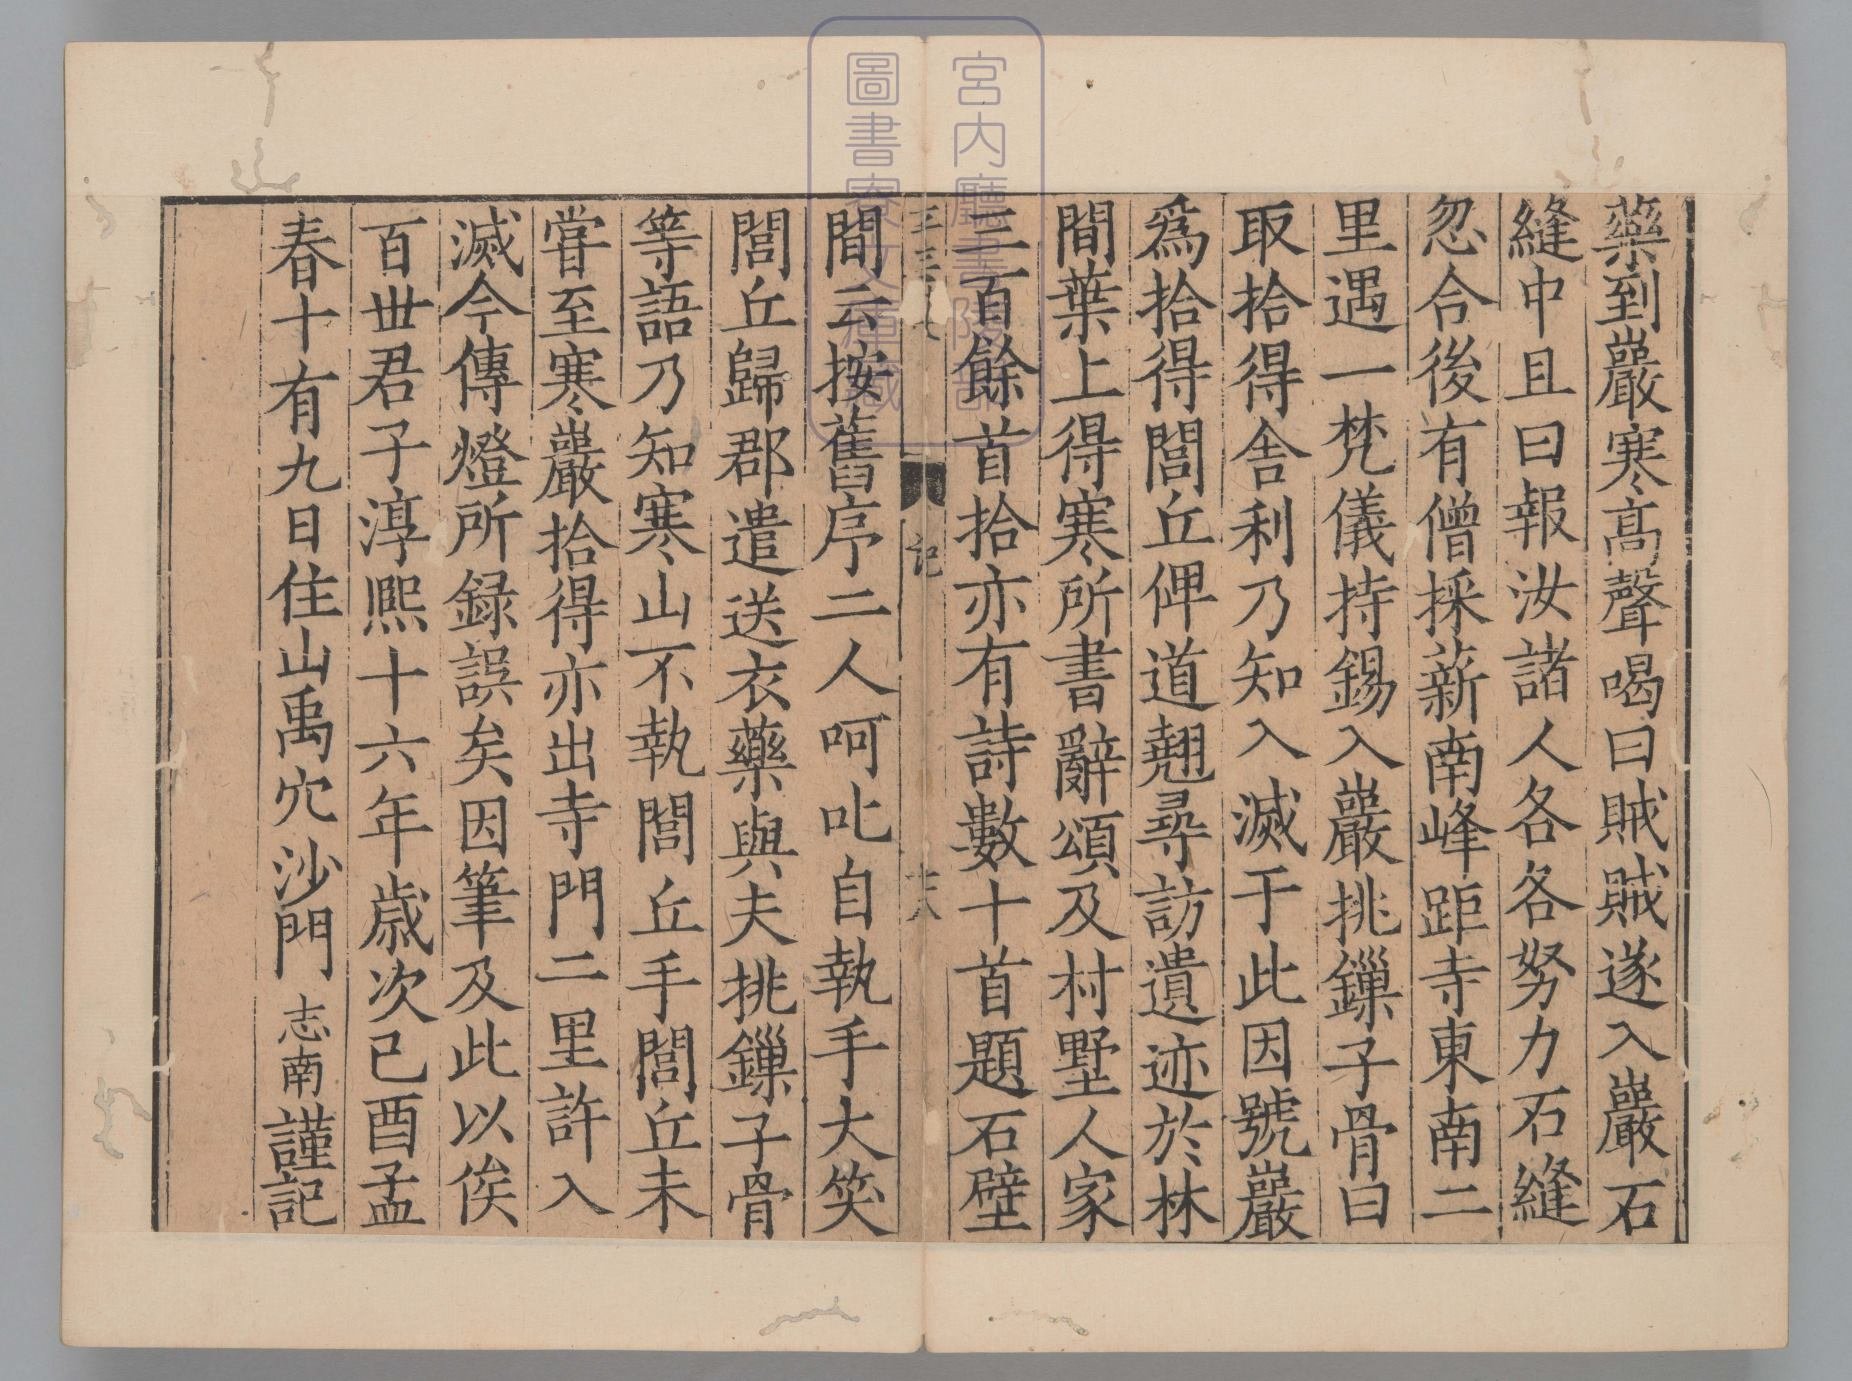 藥到巖寒高聲喝曰賊賊遂入巖石
縫中且曰報汝諸人各各努力石縫
忽合後有僧採薪南峰距寺東南二
里遇一梵儀持錫入巖挑鏁子骨曰
取拾得舍利乃知入滅于此因號巖
爲拾得閭丘俾道翹尋訪遺迹於林
間葉上得寒所書辭頌及村墅人家
三百餘首拾亦有詩數十首題石壁
記
十八
間云按舊序二人呵叱自執手大笑
閭丘歸郡遣送衣藥與夫挑鏁子骨
等語乃知寒山不執閭丘手閭丘未
嘗至寒巖拾得亦出寺門二里許入
滅今傳燈所録誤矣因筆及此以俟
百世君子淳熙十六年歲次己酉孟
春十有九日住山禹穴沙門志南謹記
宮内廳書陵部
圖書寮文庫藏